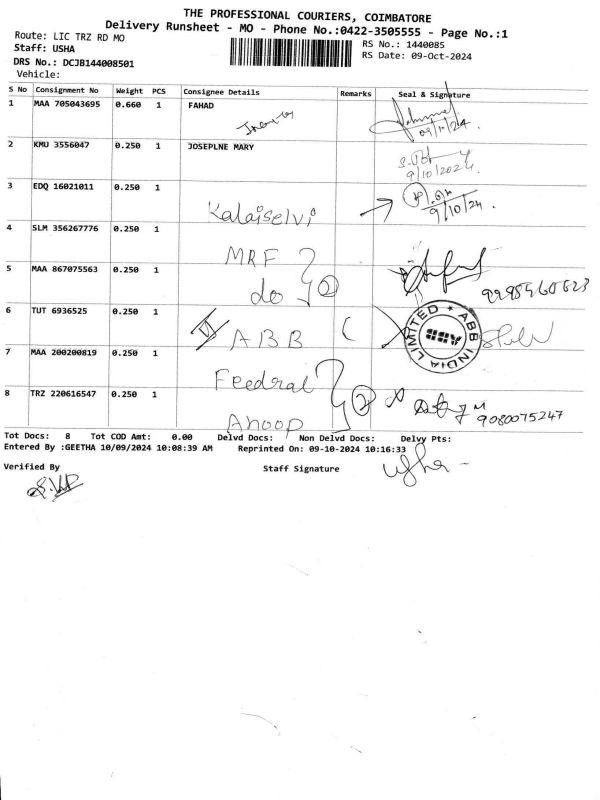 THE PROFESSIONAL COURIERS, COIMBATORE
Delivery Runsheet - MO - Phone No.:0422-3505555 - Page No.:1
Route: LIC TRZ RD MO
RS No.: 1440085
Staff: USHA
RS Date: 09-Oct-2024
DRS No.: DCJB144008501
Vehicle:
S No Consignment No Weight PCS Consignee Details Remarks Seal & Signature
1 MAA 705043695 0.660 1 FAHAD
09/10/24.
2 KMU 3556047 0.250 1 JOSEPLNE MARY
9/10/2024
3 EDQ 16021011 0.250 1
Kalaiselvi
9/10/24.
4 SLM 356267776 0.250 1
MRF
5 MAA 867075563 0.250 1
do 2
6 TUT 6936525 0.250 1
ABB
ABB INDIA LIMITED
ABB
7 MAA 200200819 0.250 1
Feedral
2
8 TRZ 220616547 0.250 1
9080075247
Anoop
Tot Docs: 8 Tot COD Amt: 0.00 Delvd Docs: Non Delvd Docs: Delvy Pts:
Entered By :GEETHA 10/09/2024 10:08:39 AM Reprinted On: 09-10-2024 10:16:33
Verified By Staff Signature
usha